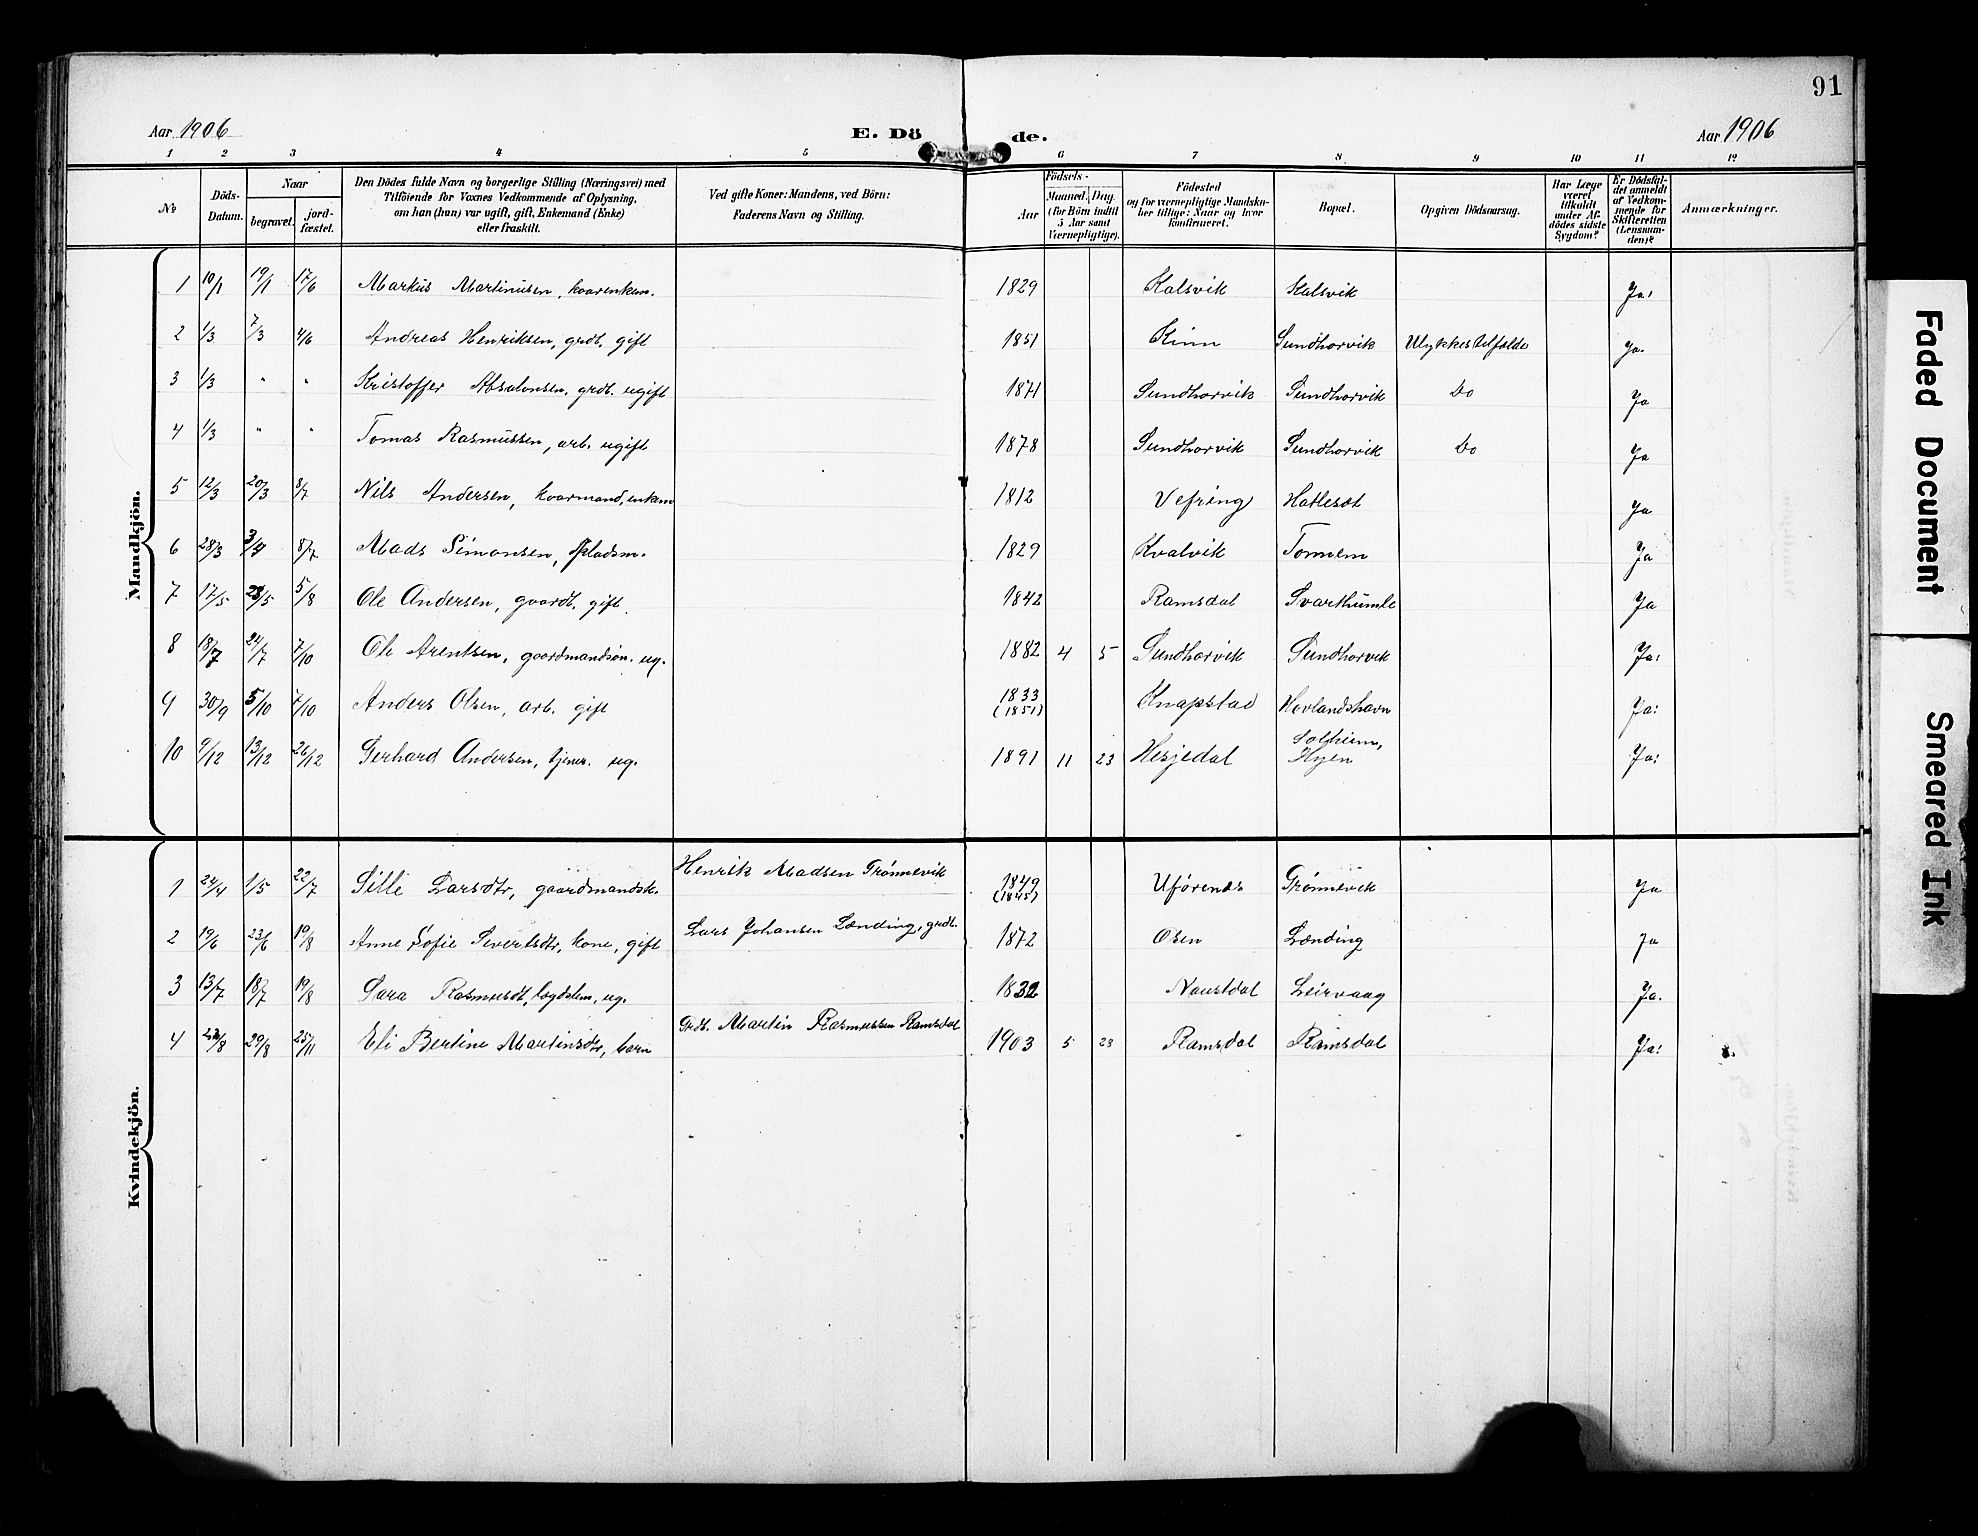 91
Aar 1906 E. Döde. Aar 1906
1 2 3 4 5 6 7 8 9 10 11 12
No Döds-Datum. Naar begravet. jord-fæstet. Den Dödes fulde Navn og borgerlige Stilling (Næringsvei) med Tilföiende for Voxnes Vedkommende af Oplysning, om han (hun) var ugift, gift, Enkemand (Enke) eller fraskilt. Ved gifte Koner: Mandens, ved Börn: Faderens Navn og Stilling. Födsels- Aar Maaned. Dag. (for Börn indtil 5 Aar samt Værnepligtige). Födested og for værnepligtige Mandskaber tillige: Naar og hvor konfirmeret. Bopæl. Opgiven Dödsaarsag. Har Læge været tilkaldt under Afdödes sidste Sygdom? Er Dödsfaldet anmeldt af Vedkommende for Skifteretten (Lensmanden)? Anmærkninger.
Mandkjön.
1 10/1 19/1 17/6 Markus Martinusen, kaarenkem. 1829 Kalsvik Kalsvik Ja:
2 1/3 7/3 4/6 Andreas Henriksen, grdb. gift 1851 Kinn Sundhorvik Ulykkestilfælde Ja.
3 1/3 " " Kristoffer Absalonsen, grdb. ugift 1871 Sundhorvik Sundhorvik Do Ja
4 1/3 " " Tomas Rasmussen, arb. ugift 1878 Sundhorvik Sundhorvik Do Ja
5 12/3 20/3 8/7 Nils Andersen, kaarmand, enkem 1812 Vefring Hatleset Ja
6 28/3 3/4 8/7 Mads Simonsen, pladsm. 1829 Kvalvik Tonnem Ja
7 17/5 28/5 5/8 Ole Andersen, gaardb. gift. 1842 Ramsdal Svarthumle Ja
8 18/7 24/7 7/10 Ole Arentsen, gaardmandsøn. ug. 1882 4 5 Sundhorvik Sundhorvik Ja:
9 30/9 5/10 7/10 Anders Olsen, arb. gift 1833 (1851) Knapstad Hovlandshavn Ja:
10 9/12 13/12 26/12 Gerhard Andersen, tjener. ug. 1891 11 23 Hesjedal Solheim, Hyen Ja:
Kvindekjön.
1 24/4 1/5 22/7 Sille Larsdtr, gaardmandsk. Henrik Madsen Grønnevik 1849 (1845) Uførenes Grønnevik Ja
2 19/6 23/6 19/8 Anne Sofie Severtsdtr, kone, gift Lars Johansen Lænding, grdb. 1872 Osen Lænding Ja
3 13/7 18/7 19/8 Sara Rasmusdt, lægdslem, ug. 1832 Naustdal Leirvaag Ja.
4 29/8 25/11 Eli Bertine Martinsdtr, barn Grdb. Martin Rasmussen Ramsdal 1903 5 23 Ramsdal Ramsdal Ja:
Faded Document
Smeared Ink